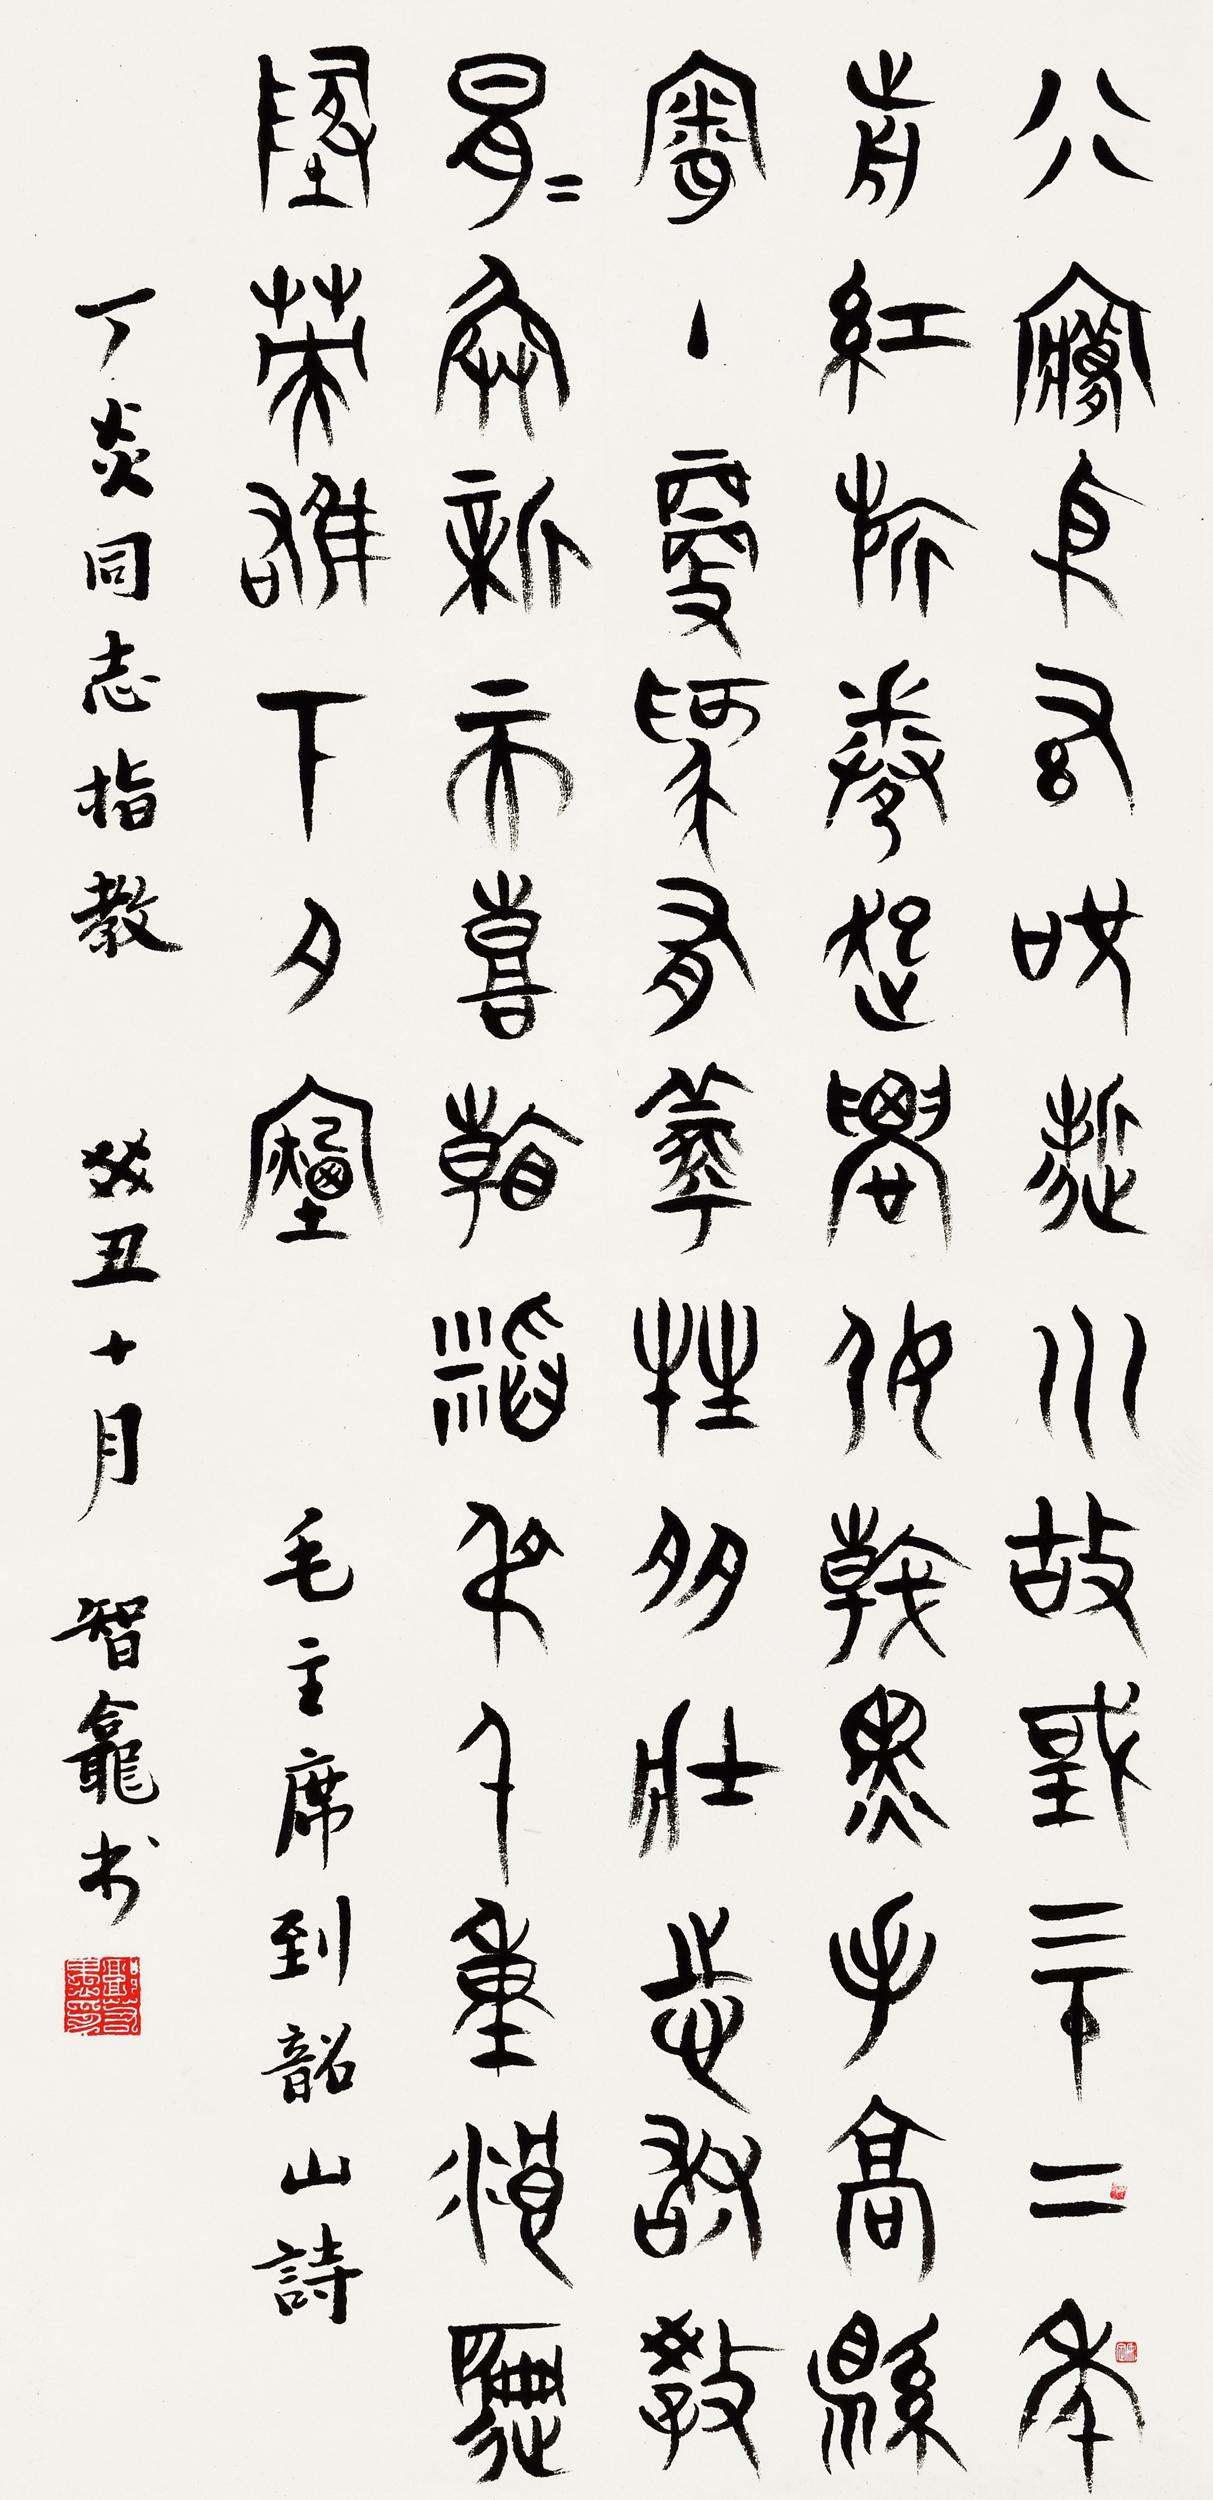 八夢依稀咒逝川故國三十二年
前紅旂卷起農奴戟黑手高縣
霸丶鞭為有犧牲多壯志敢教
日月奐新天喜看稻尗千重浪遍
地英雄下夕煙 毛主席到韶山詩
丁炎同志指教 癸丑十月 智龕书